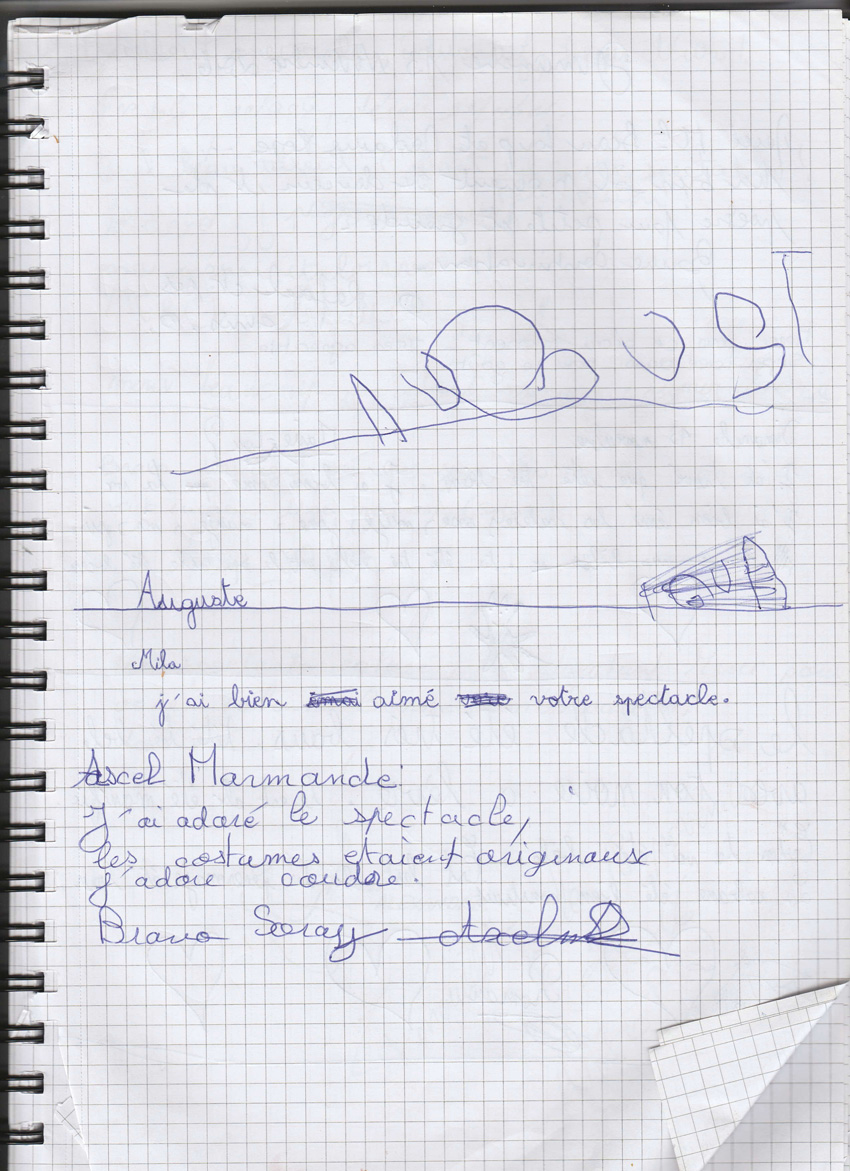 AUGUST
Auguste
Mila
j'ai bien aimé votre spectacle.
Axcel Marmande
J'ai adoré le spectacle,
les costumes etaient originaux
j'adore coudre.
Bravo